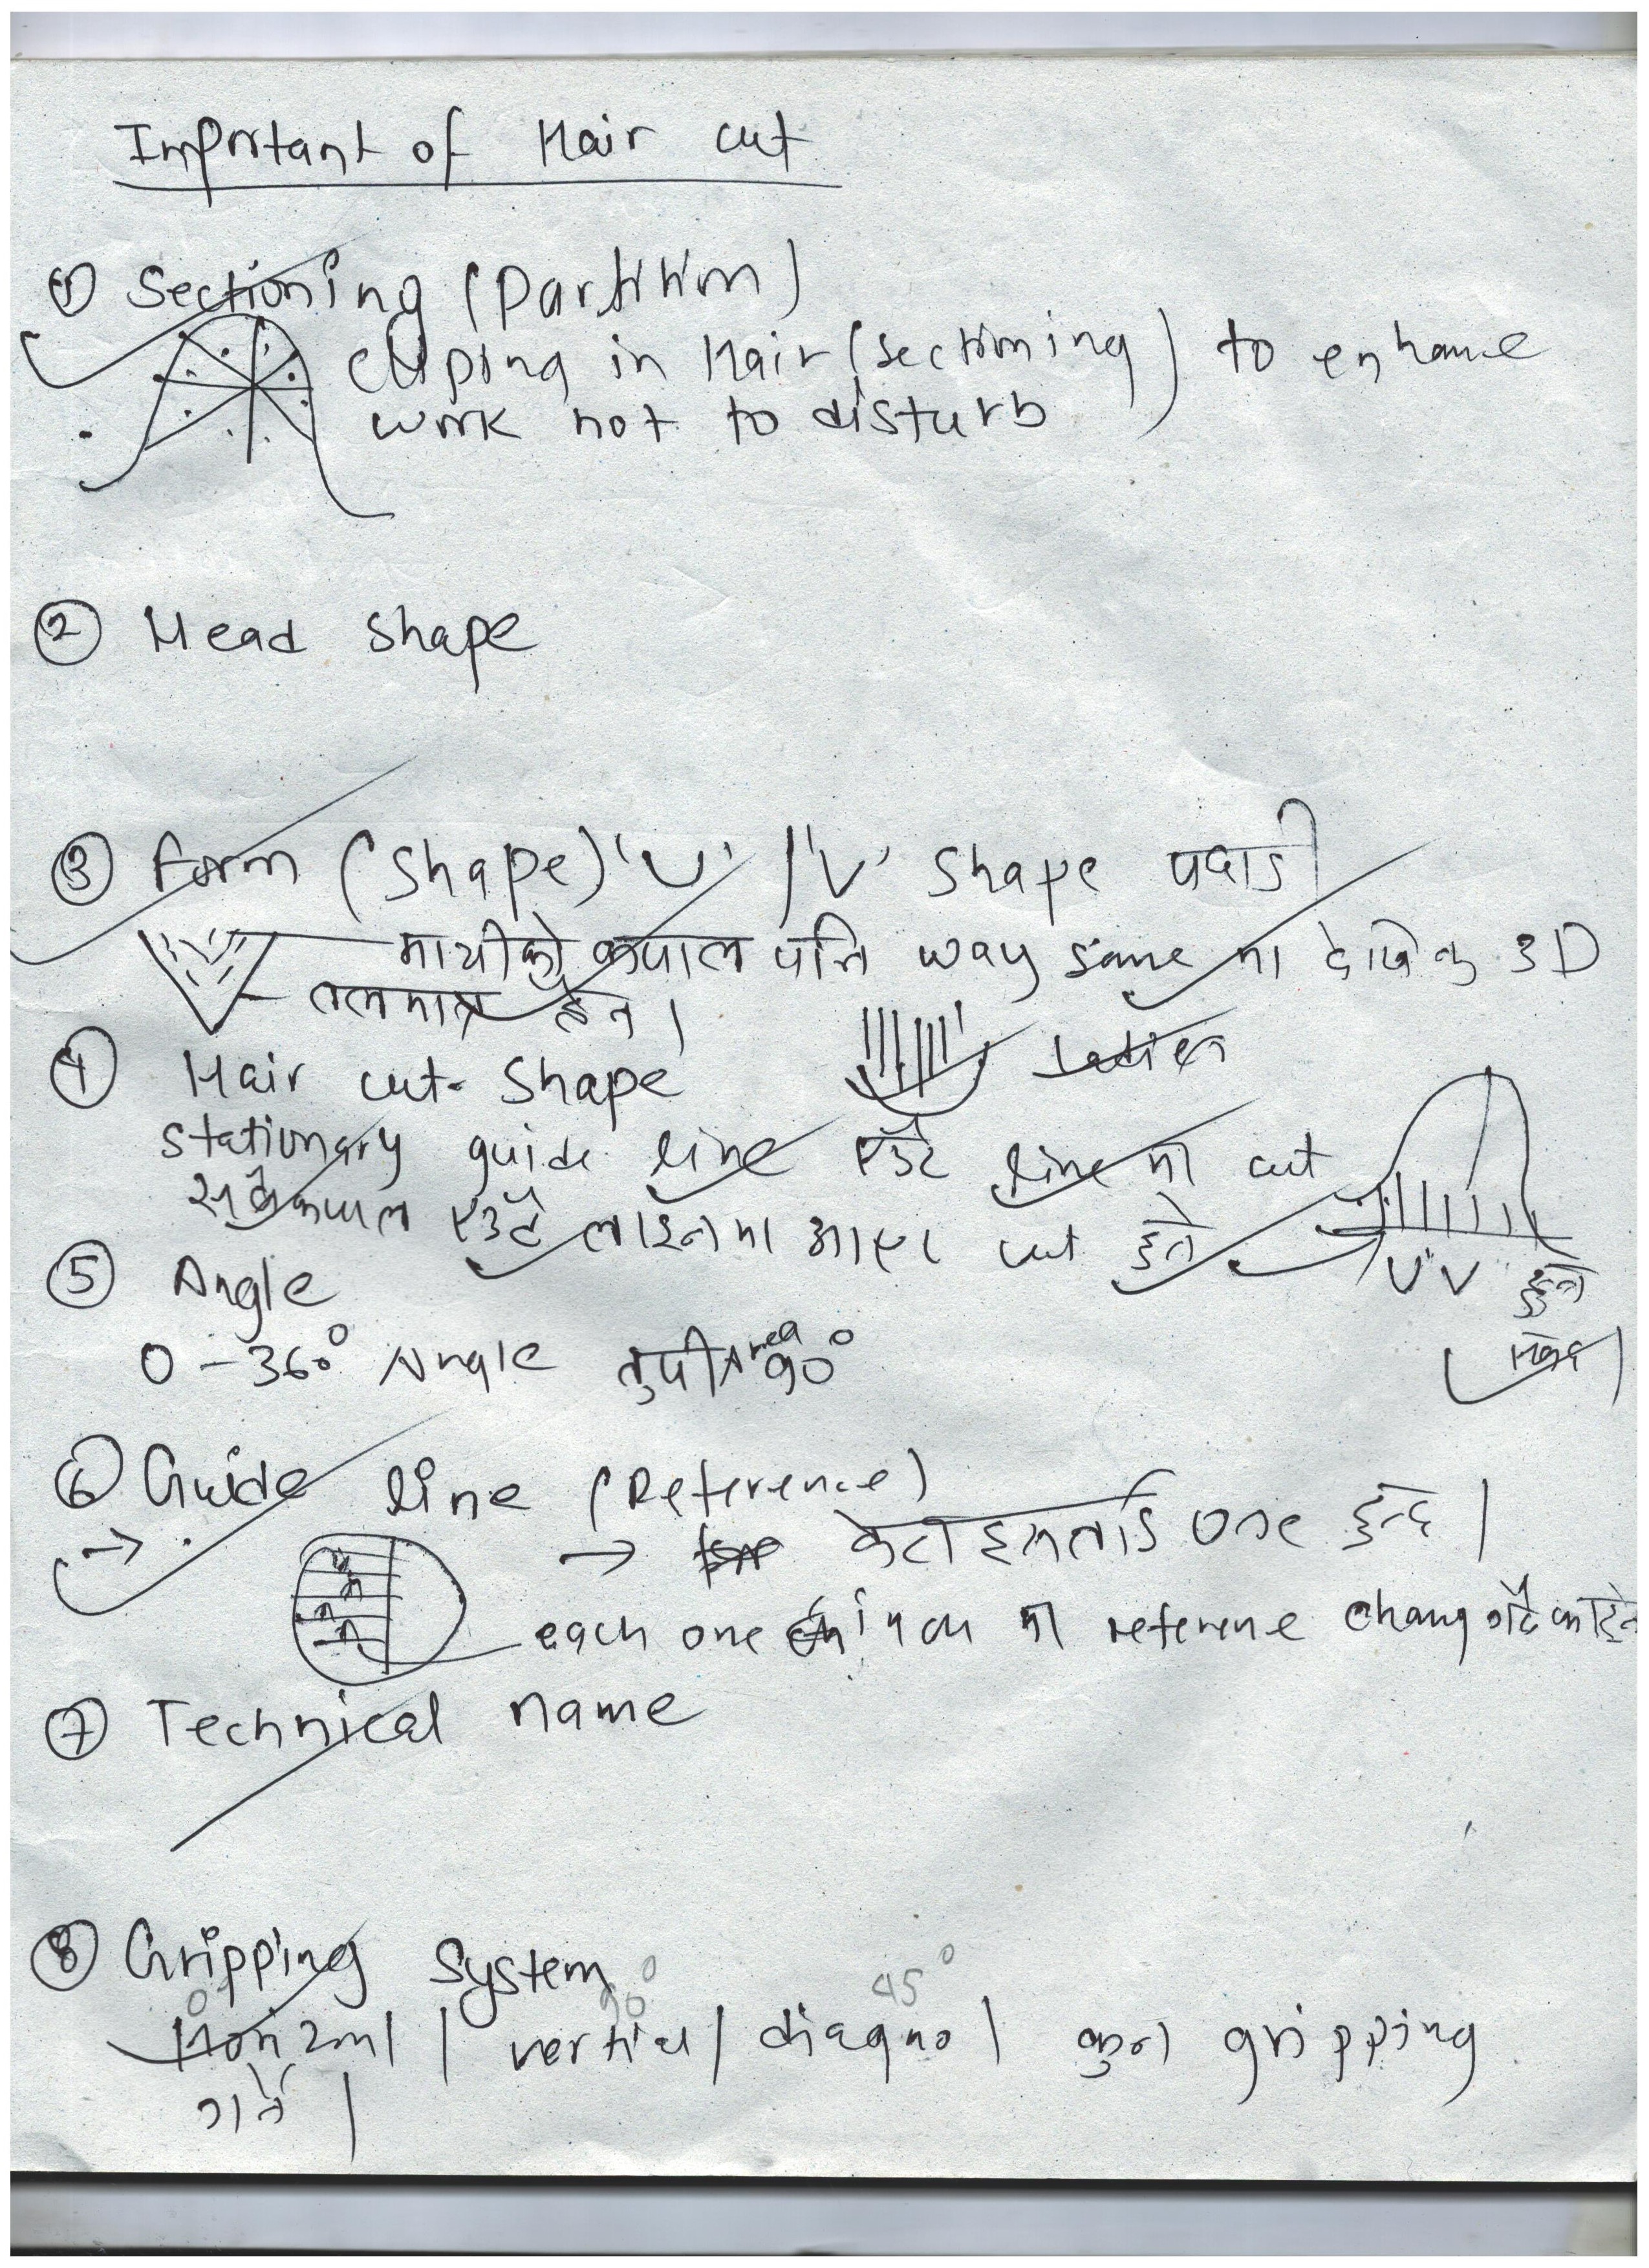 Important of Hair cut
① Sectioning (Partition)
Cliping in Hair (sectioning) to enhance
work not to disturb
② Head shape
③ Form (Shape) 'U' / 'V' Shape पछाडी
माथीको कपाल पनि way same मा देखिनु 3D
तलमात्र हैन।
④ Hair cut Shape Ladies
stationary guide line एउटै line मा cut
सबै कपाल एउटै लाइनमा आएर cut हुने
U V हुन
⑤ Angle
0 - 360° Angle तुपी Area 90°
⑥ Guide line (Reference)
→ → केटा हरुलाई one हुन्छ।
each one inch मा reference chang गर्दै काटिने
⑦ Technical name
⑧ Gripping System
0° 90° 45°
Horizonl | vertical | diagno | कुन gripping
गर्ने।